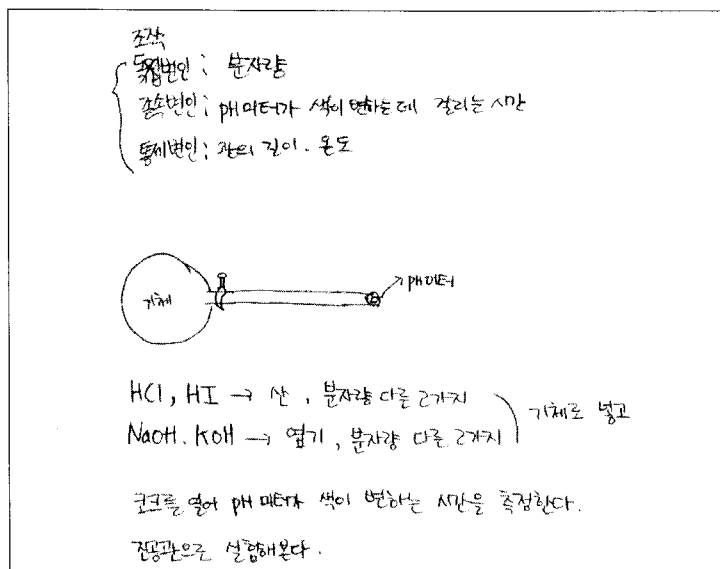 조작
독립변인 ; 분자량
종속변인 ; pH 미터가 색이 변하는데 걸리는 시간
통제변인 ; 관의 길이. 온도
기체
pH미터
HCl, HI → 산, 분자량 다른 2가지
기체로 넣고
NaOH. KOH → 염기, 분자량 다른 2가지
코크를 열어 pH 미터가 색이 변하는 시간을 측정한다.
진공관으로 실험해본다.